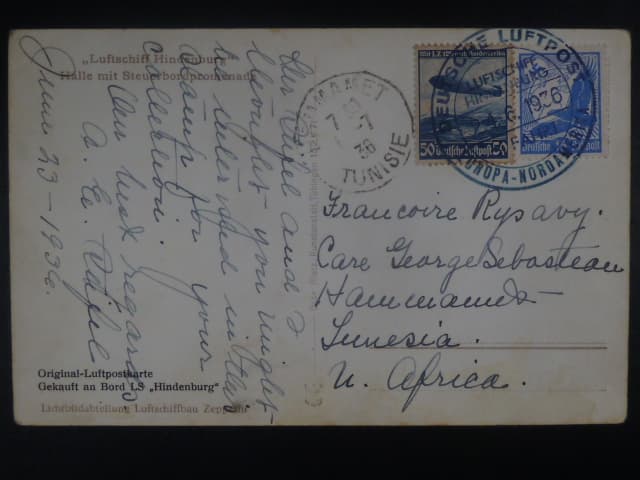 „Luftschiff Hindenburg"
Halle mit Steuerbordpromenade
Mrs. Eifel and I
thought you might
be interested in this
stamp for your
collection.
Our best regards
A. C. Eifel
June 23-1936.
Original-Luftpostkarte
Gekauft an Bord LS „Hindenburg"
Lichtbildabteilung Luftschiffbau Zeppelin
HAMMAMET
7 36
TUNISIE
50 Deutsche Luftpost 50
DEUTSCHE LUFTPOST
LUFTSCHIFF
HINDENBURG
1936
EUROPA-NORDAMERIKA
Francoire Rysavy.
Care George Sebastean
Hammamet
Tunesia.
N. Africa.